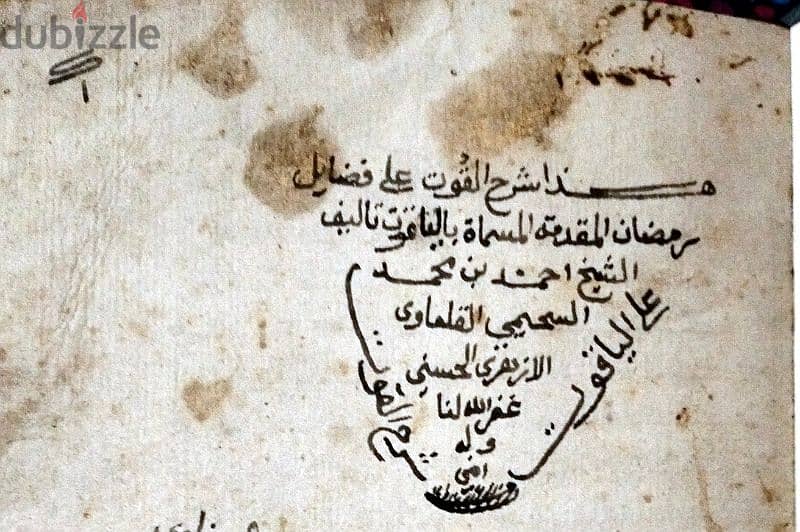 dubizzle
هذا شرح القُوت على فضايل
رمضان المقدمة المسماة بالياقوت تاليف
الشيخ احمد بن محمد
السحيمي القلعاوي
الازهري الحسني
غفر الله لنا
وله
امين
على الياقوت